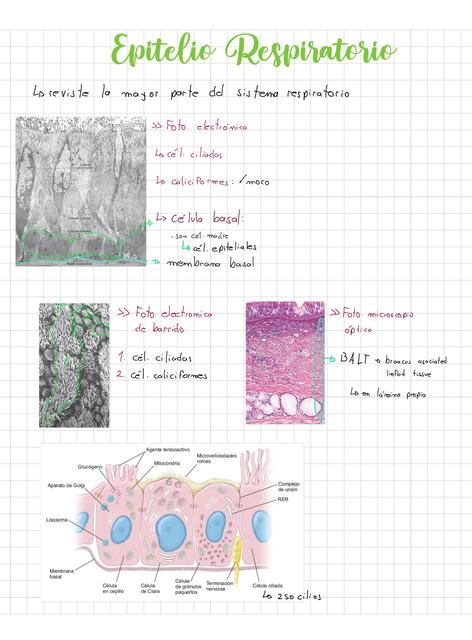 Epitelio Respiratorio
↳ reviste la mayor parte del sistema respiratorio
>> Foto. electrónica
↳ cél. ciliadas
↳ caliciformes: ✓moco
↳ Célula basal:
- son cél. madre
↳ cél. epiteliales
→ membrana basal
>> Foto. electronica
de barrido
1. cél. ciliadas
2. cél. caliciformes
>> Foto. microscopio
óptico
→ BALT → broncus asociated
linfoid tissue
↳ en lámina propia
Agente tensioactivo
Glucógeno
Mitocondria
Microvellosidades
romas
Aparato de Golgi
Complejo
de unión
RER
Lisosoma
Membrana
basal
Célula
en cepillo
Célula
de Clara
Célula de
gránulos
pequeños
Terminación
nerviosa
Célula ciliada
↳ 250 cilios